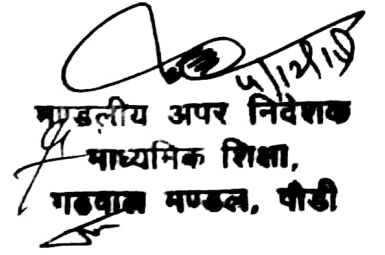 मण्डलीय अपर निदेशक
माध्यमिक शिक्षा,
गढवाल मण्डल, पौडी